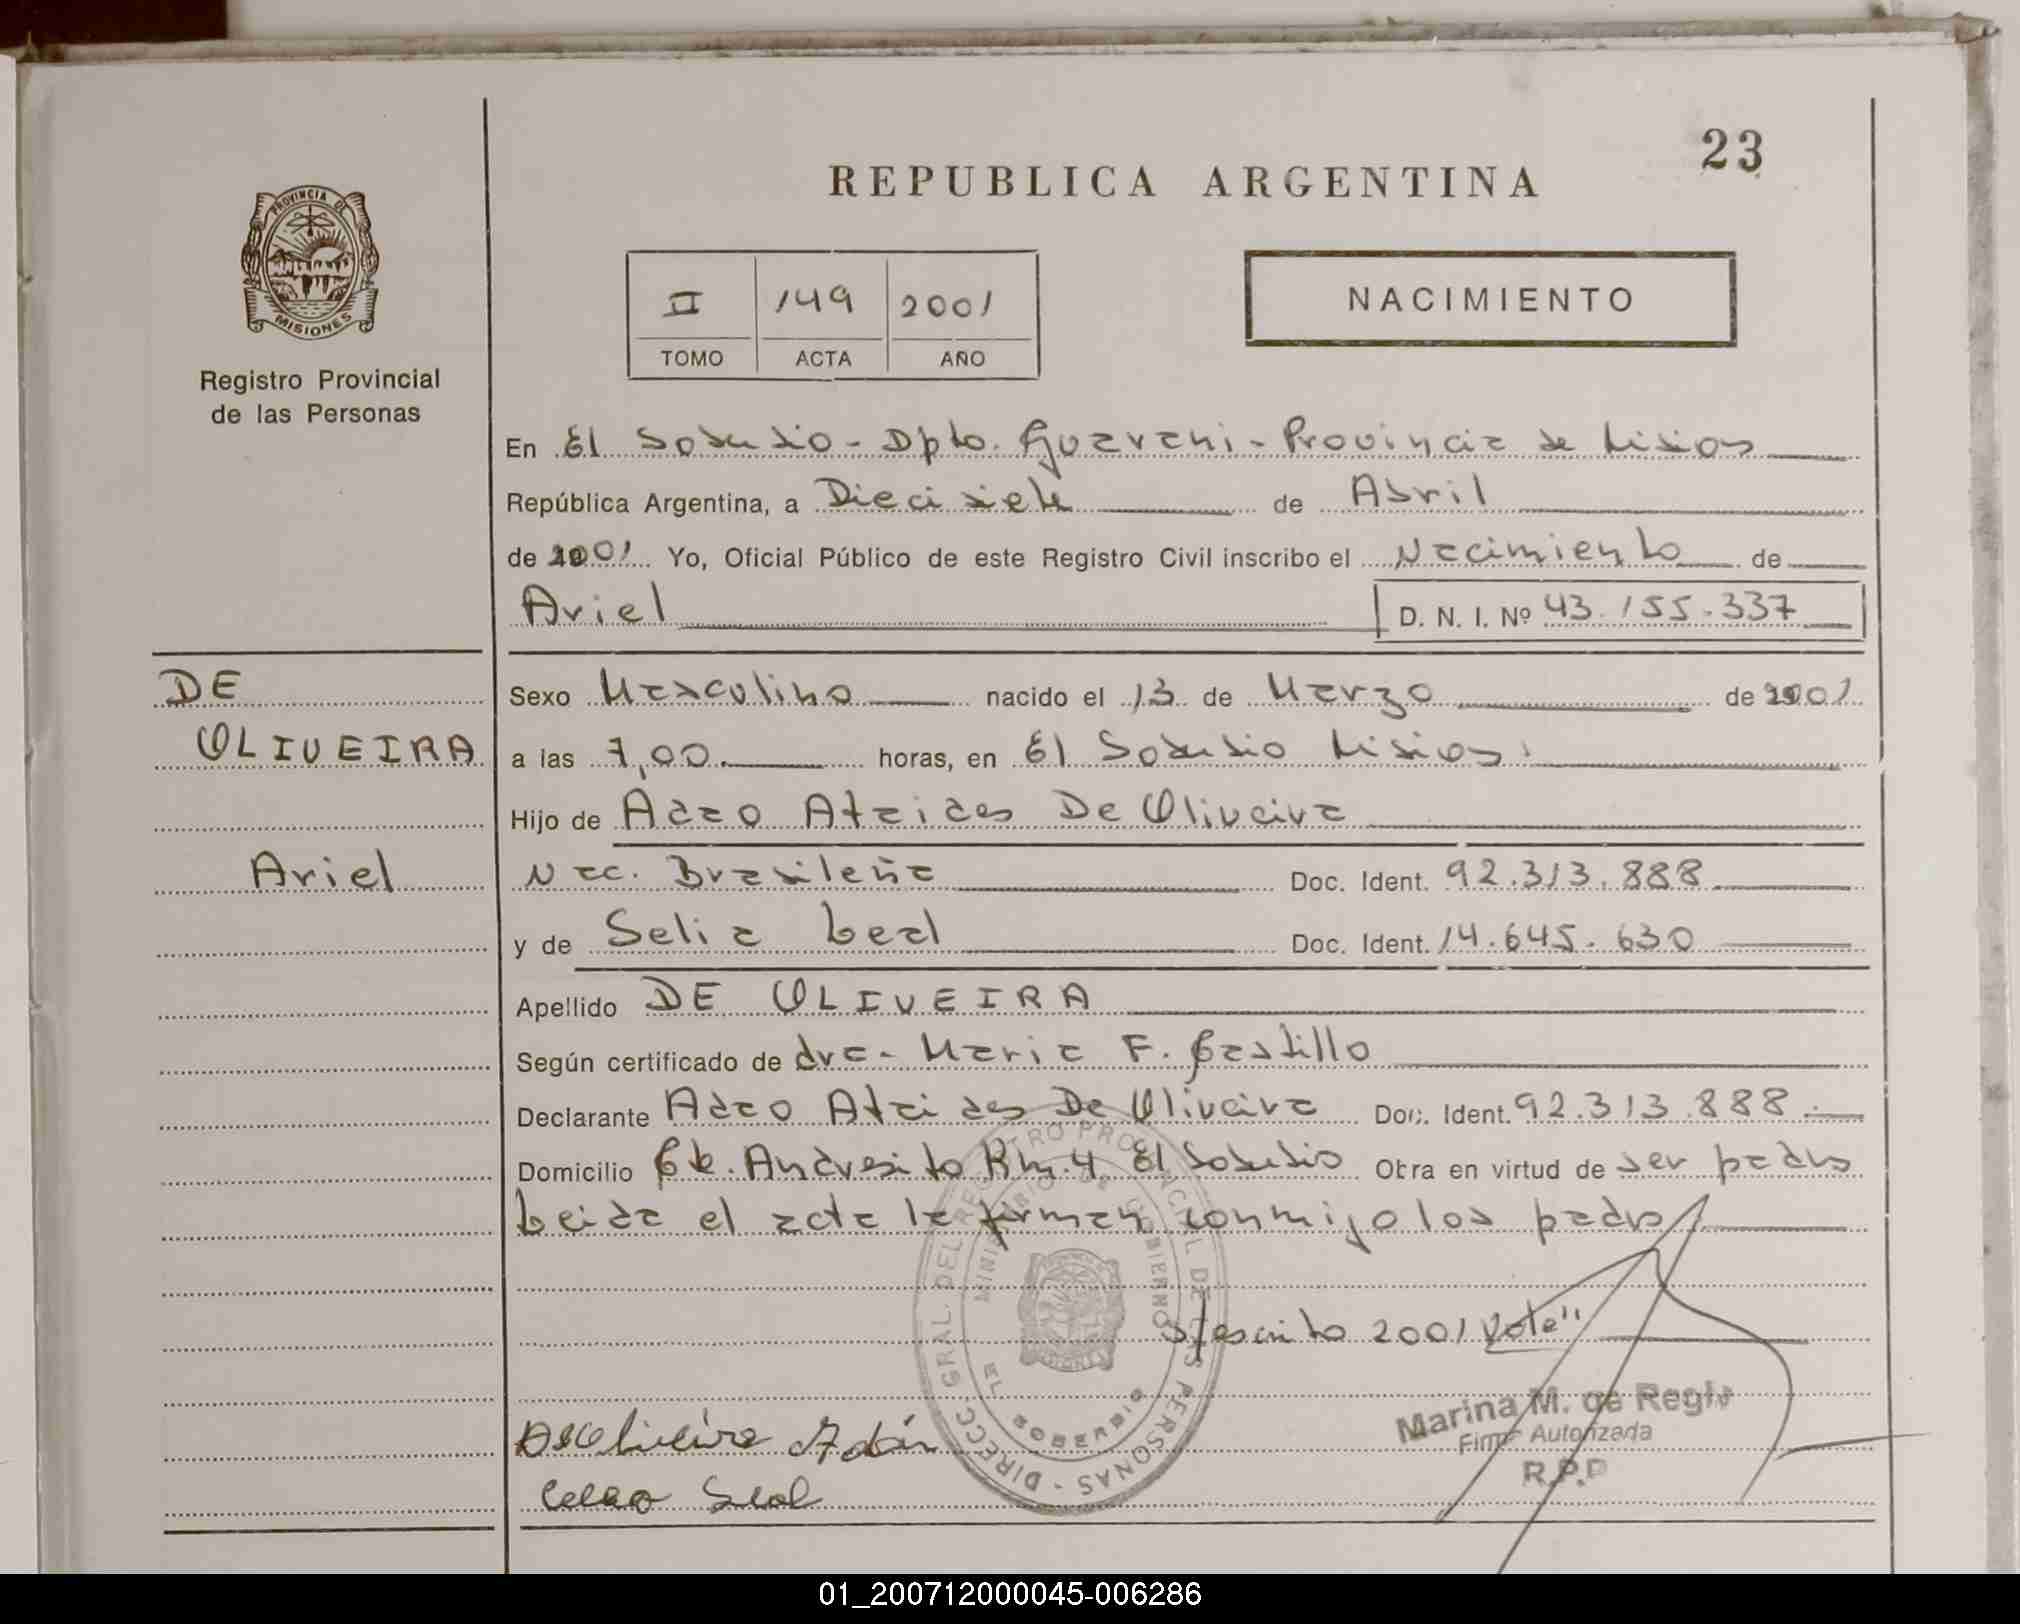 23
REPUBLICA ARGENTINA
PROVINCIA DE MISIONES
Registro Provincial
de las Personas
II 149 2001
TOMO ACTA AÑO
NACIMIENTO
En El Soberbio - Dpto. Guarani - Provincia de Misiones
República Argentina, a Diecisiete de Abril
de 2001 Yo, Oficial Público de este Registro Civil inscribo el Nacimiento de
Ariel D. N. I. Nº 43.155.337
DE
OLIVEIRA
Ariel
Sexo Masculino nacido el 13 de Marzo de 2001
a las 7,00 horas, en El Soberbio Misiones
Hijo de Adao De Oliveira
Nac. Brasileña Doc. Ident. 92.313.888
y de Selia Leal Doc. Ident. 14.645.630
Apellido DE OLIVEIRA
Según certificado de dra. Maria F. Castillo
Declarante Adao De Oliveira Doc. Ident. 92.313.888
Domicilio Andresito Km. 4 El Soberbio Obra en virtud de ser padre
Leida el acta la firman conmigo los padres
S/escrito 2001 Vale"
DIRECC. GRAL. DEL REGISTRO PROVINCIAL DE LAS PERSONAS
MINISTERIO DE GOBIERNO
EL SOBERBIO
Marina M. de Regis
Firma Autorizada
R.P.P
De Oliveira Adán
Leal
01_200712000045-006286